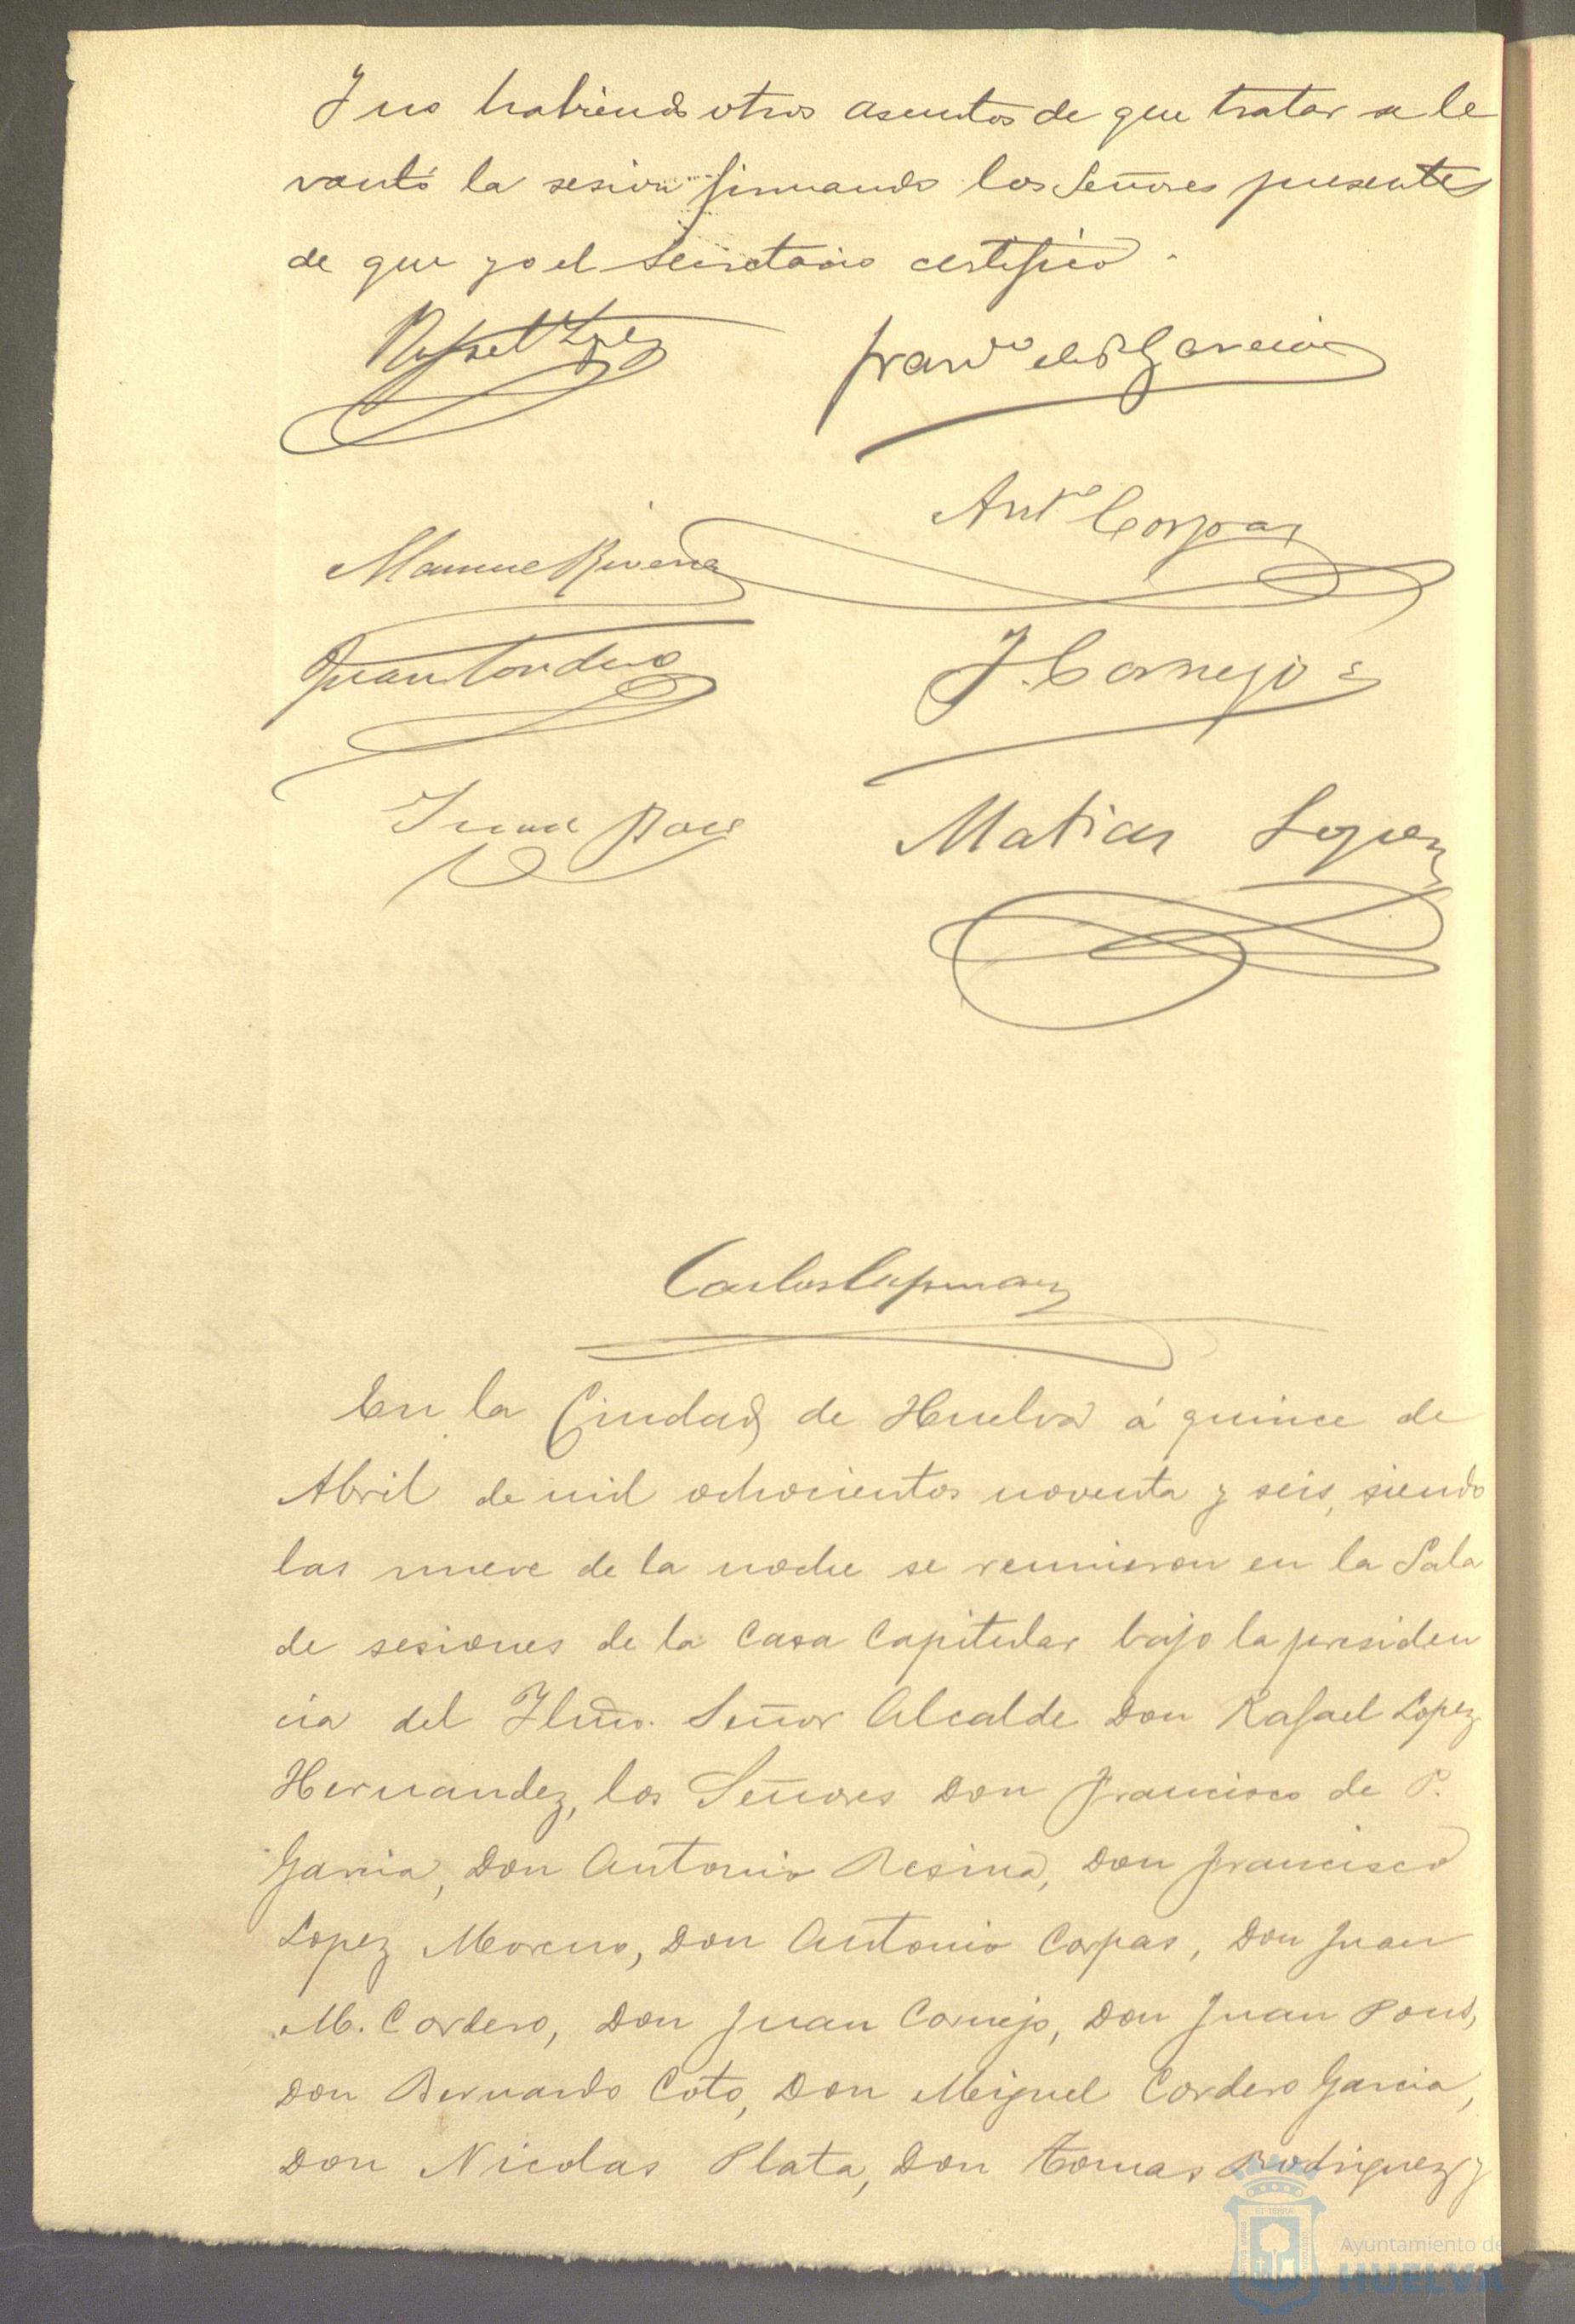 Y no habiendo otros asuntos de que tratar se le
vantó la sesion firmando los Señores presentes
de que yo el Secretario certifico.
Rafael Lpez
Franco de P Garcia
Anto Corpas
Manuel Rivera
Juan Cordero
J. Cornejo
Juan Pons
Matias Lopez
Carlos
En la Ciudad de Huelva á quince de
Abril de mil ochocientos noventa y seis, siendo
las nueve de la noche se reunieron en la Sala
de sesiones de la Casa Capitular bajo la presiden
cia del Iltmo. Señor Alcalde Don Rafael Lopez
Hernandez, los Señores Don Francisco de P.
Garcia, Don Antonio Resina, Don Francisco
Lopez Moreno, Don Antonio Corpas, Don Juan
M. Cordero, Don Juan Cornejo, Don Juan Pons,
Don Bernardo Coto, Don Miguel Cordero Garcia,
Don Nicolas Plata, Don Tomas Rodriguez y
Ayuntamiento de
HUELVA